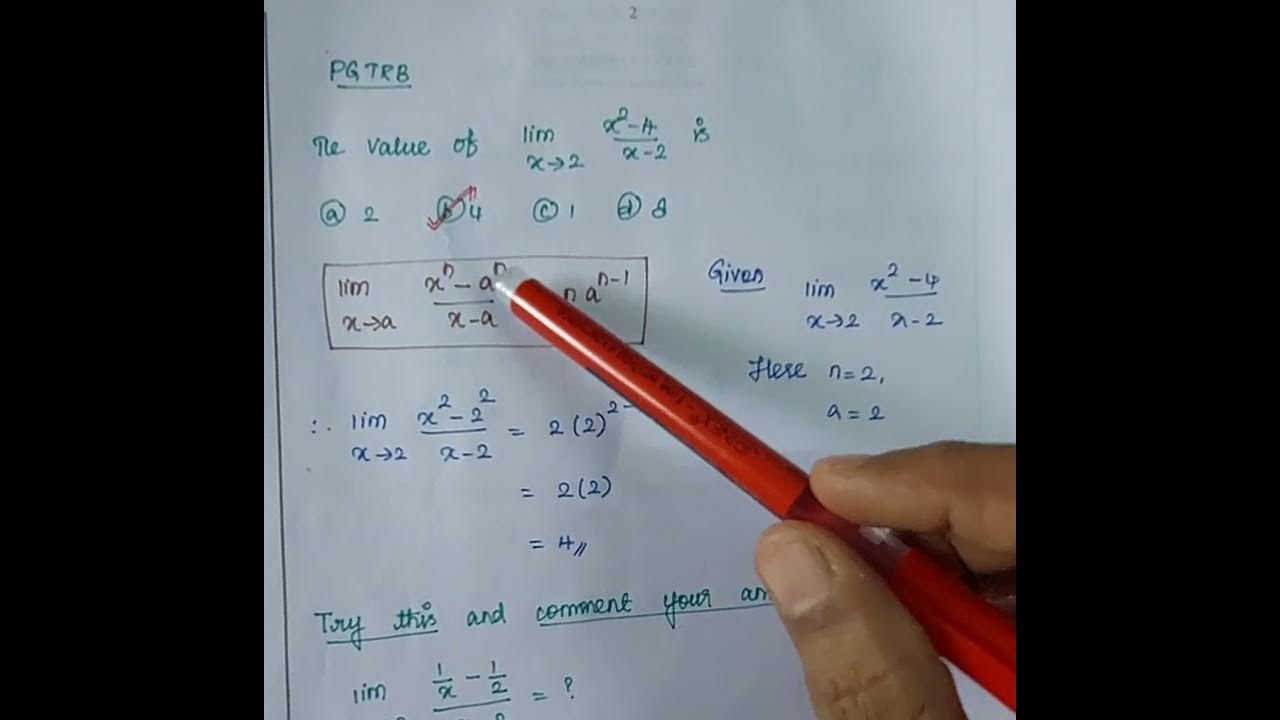 2
PGTRB
The value of lim x→2 x²-4 / x-2 is
ⓐ 2 ⓑ 4 ⓒ 1 ⓓ 8
lim x→a xⁿ - aⁿ / x-a n aⁿ⁻¹
Given lim x→2 x² - 4 / x-2
Here n=2,
a=2
∴ lim x→2 x² - 2² / x-2 = 2(2)²⁻
= 2(2)
= 4//
Try this and comment your
lim 1/x - 1/2 = ?